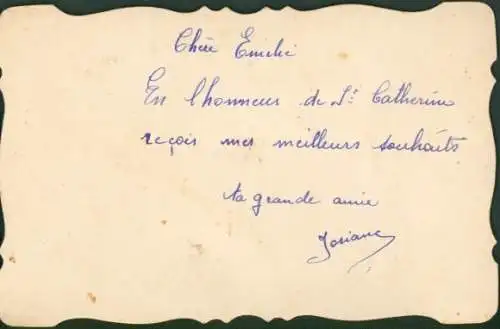 Chère Emilie
En l'honneur de Ste Catherine
reçois mes meilleurs souhaits
ta grande amie
Josiane